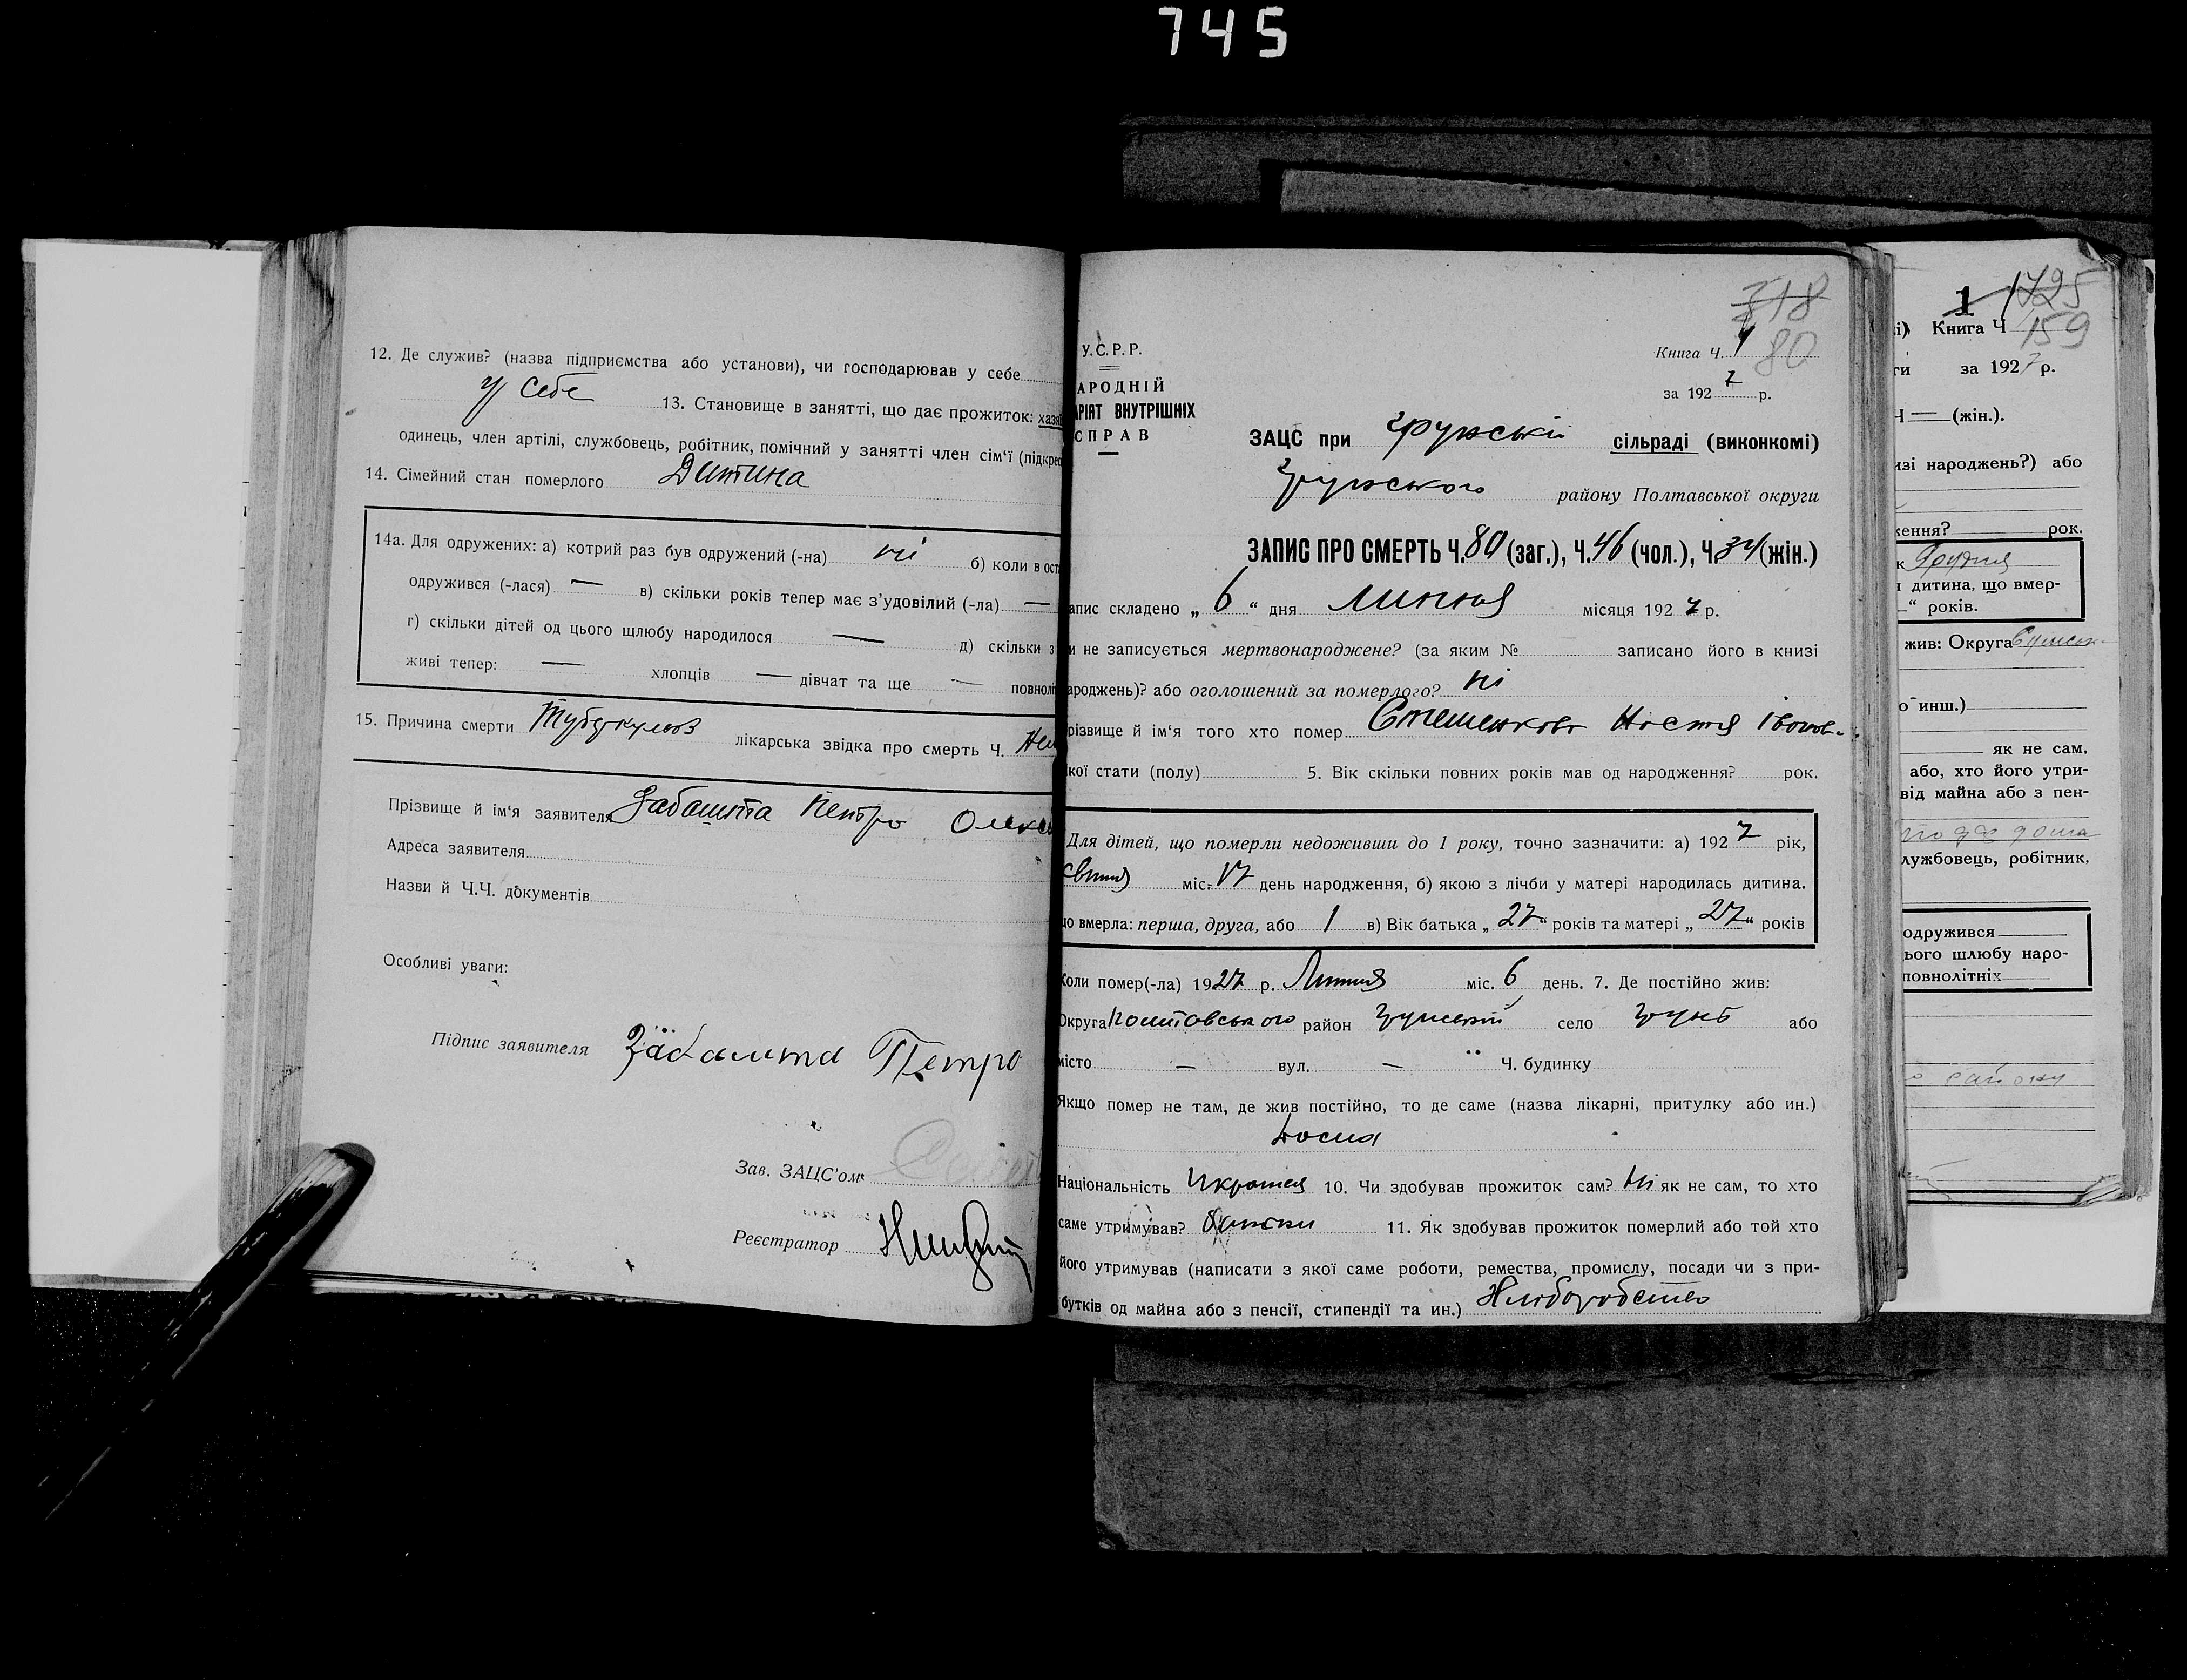 745
12. Де служив? (назва підприємства або установи), чи господарював у себе
у себе 13. Становище в занятті, що дає прожиток: хазя
одинець, член артілі, службовець, робітник, помічний у занятті член сім'ї (підкрес
14. Сімейний стан померлого Дитина
14а. Для одружених: а) котрий раз був одружений (-на) ні б) коли в ост
одружився (-лася) — в) скільки років тепер має з'удовілий (-ла) —
г) скільки дітей од цього шлюбу народилося — д) скільки з
живі тепер: — хлопців — дівчат та ще — повноліт
15. Причина смерти Туберкульоз лікарська звідка про смерть Ч.
Прізвище й ім'я заявителя Забашта Петро
Адреса заявителя
Назви й Ч.Ч. документів
Особливі уваги:
Підпис заявителя Забашта Петро
Зав. ЗАЦС'ом
Реєстратор
318
У.С.Р.Р.
Книга Ч. 1 80
АРОДНІЙ
за 1927 р.
АРІЯТ ВНУТРІШНІХ
СПРАВ
ЗАЦС при сільраді (виконкомі)
району Полтавської округи
ЗАПИС ПРО СМЕРТЬ Ч. 80 (заг.), Ч. 46 (чол.), Ч. 34 (жін.)
апис складено „ 6 “ дня Липня місяця 1927 р.
и не записується мертвонароджене? (за яким № записано його в книзі
ароджень)? або оголошений за померлого? ні
різвище й ім'я того хто помер Стешенкова Настя Іванов
кої стати (полу) 5. Вік скільки повних років мав од народження? рок.
Для дітей, що померли недоживши до 1 року, точно зазначити: а) 1927 рік,
міс. 17 день народження, б) якою з лічби у матері народилась дитина.
до вмерла: перша, друга, або 1 в) Вік батька „ 27 “ років та матері „ 27 “ років
Коли помер(-ла) 1927 р. Липня міс. 6 день. 7. Де постійно жив:
Округа район село або
місто — вул. — Ч. будинку
Якщо помер не там, де жив постійно, то де саме (назва лікарні, притулку або ин.)
Дома
Національність 10. Чи здобував прожиток сам? Ні як не сам, то хто
саме утримував? 11. Як здобував прожиток померлий або той хто
його утримував (написати з якої саме роботи, ремества, промислу, посади чи з при-
бутків од майна або з пенсії, стипендії та ин.) Хліборобство
1 1725
і) Книга Ч 159
ти за 1927 р.
Ч — (жін.).
изі народжень?) або
ження? рок.
к Грудня
и дитина, що вмер-
“ років.
жив: Округа
о инш.)
як не сам,
або, хто його утри-
від майна або з пен-
лужбовець, робітник,
одружився
ього шлюбу наро-
повнолітніх
району